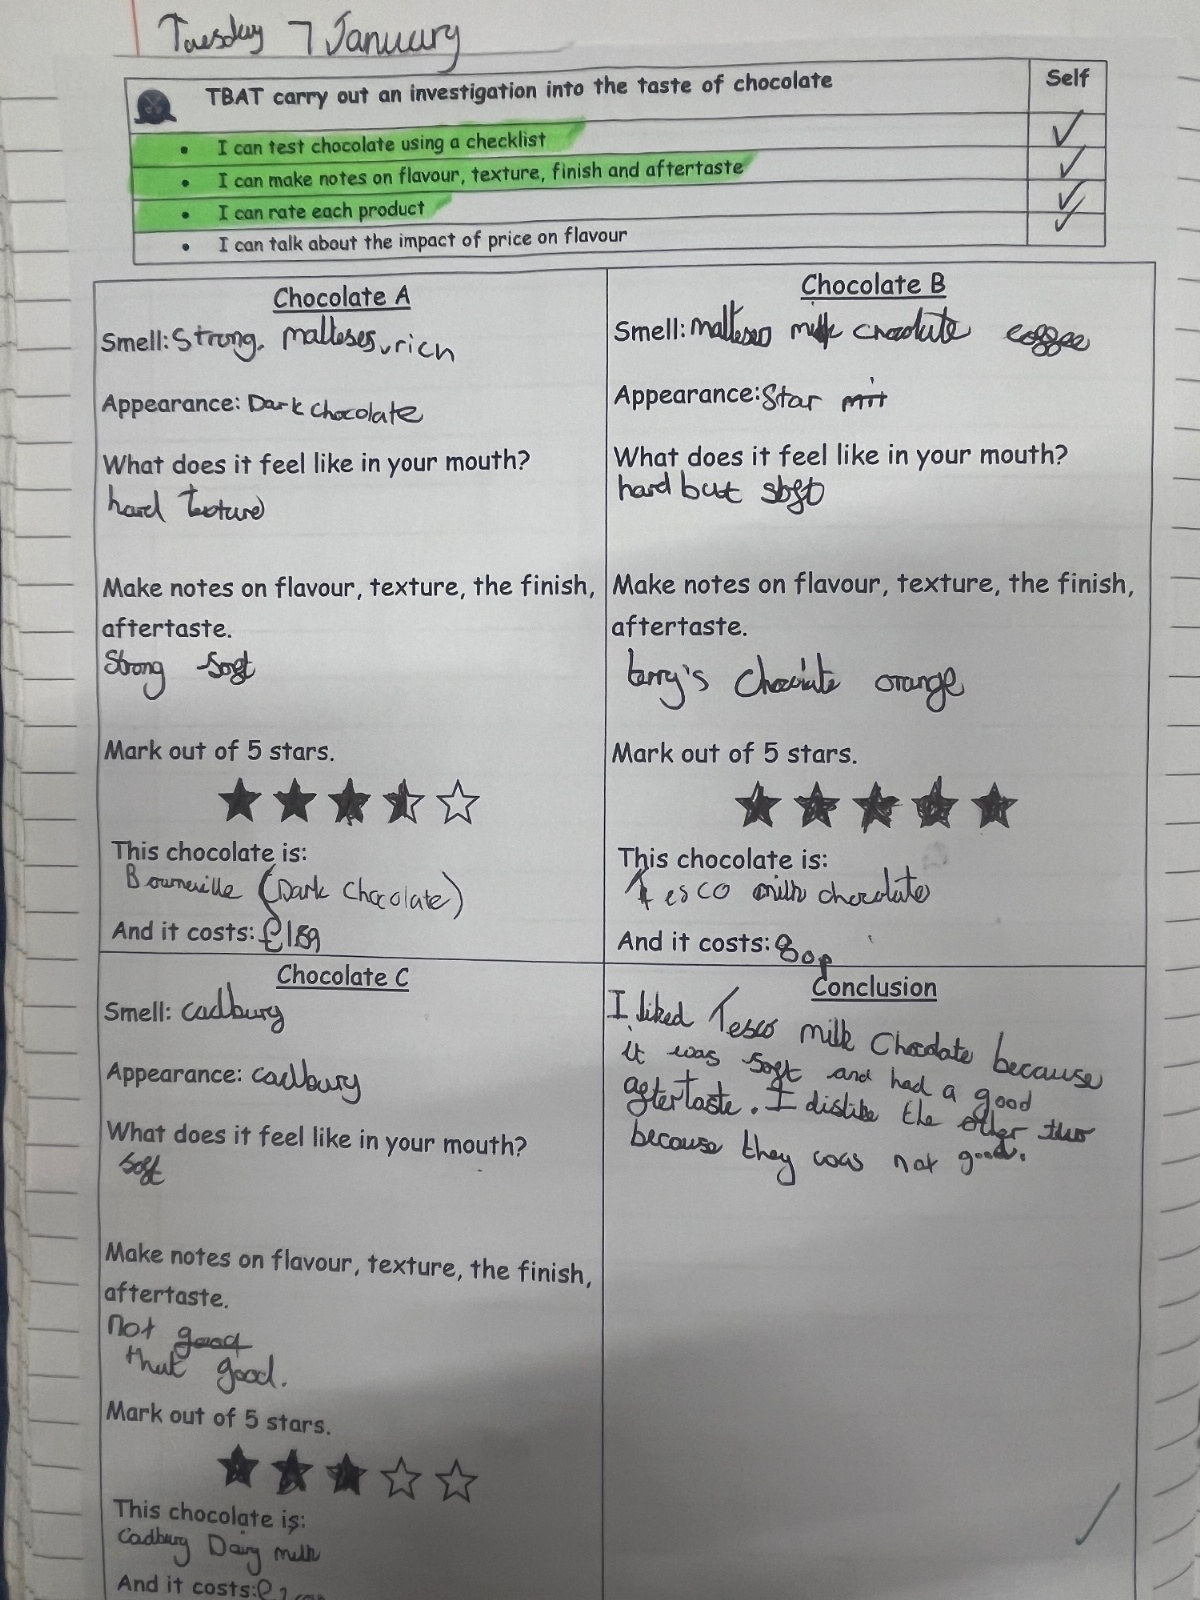 Tuesday 7 January
TBAT carry out an investigation into the taste of chocolate
Self
• I can test chocolate using a checklist
• I can make notes on flavour, texture, finish and aftertaste
• I can rate each product
• I can talk about the impact of price on flavour
Chocolate A
Smell: Strong. malteses, rich
Appearance: Dark chocolate
What does it feel like in your mouth?
hard texture
Make notes on flavour, texture, the finish,
aftertaste.
Strong soft
Mark out of 5 stars.
This chocolate is:
Bourneville (Dark Chocolate)
And it costs: £1.89
Chocolate B
Smell: malteses milk chocolate coffee
Appearance: Star
What does it feel like in your mouth?
hard but soft
Make notes on flavour, texture, the finish,
aftertaste.
terry's chocolate orange
Mark out of 5 stars.
This chocolate is:
Tesco milk chocolate
And it costs: 80p
Chocolate C
Smell: cadbury
Appearance: cadbury
What does it feel like in your mouth?
soft
Make notes on flavour, texture, the finish,
aftertaste.
not good
that good.
Mark out of 5 stars.
This chocolate is:
Cadbury Dairy milk
And it costs:
Conclusion
I liked Tesco milk Chocolate because
it was soft and had a good
aftertaste. I dislike the other two
because they was not good.